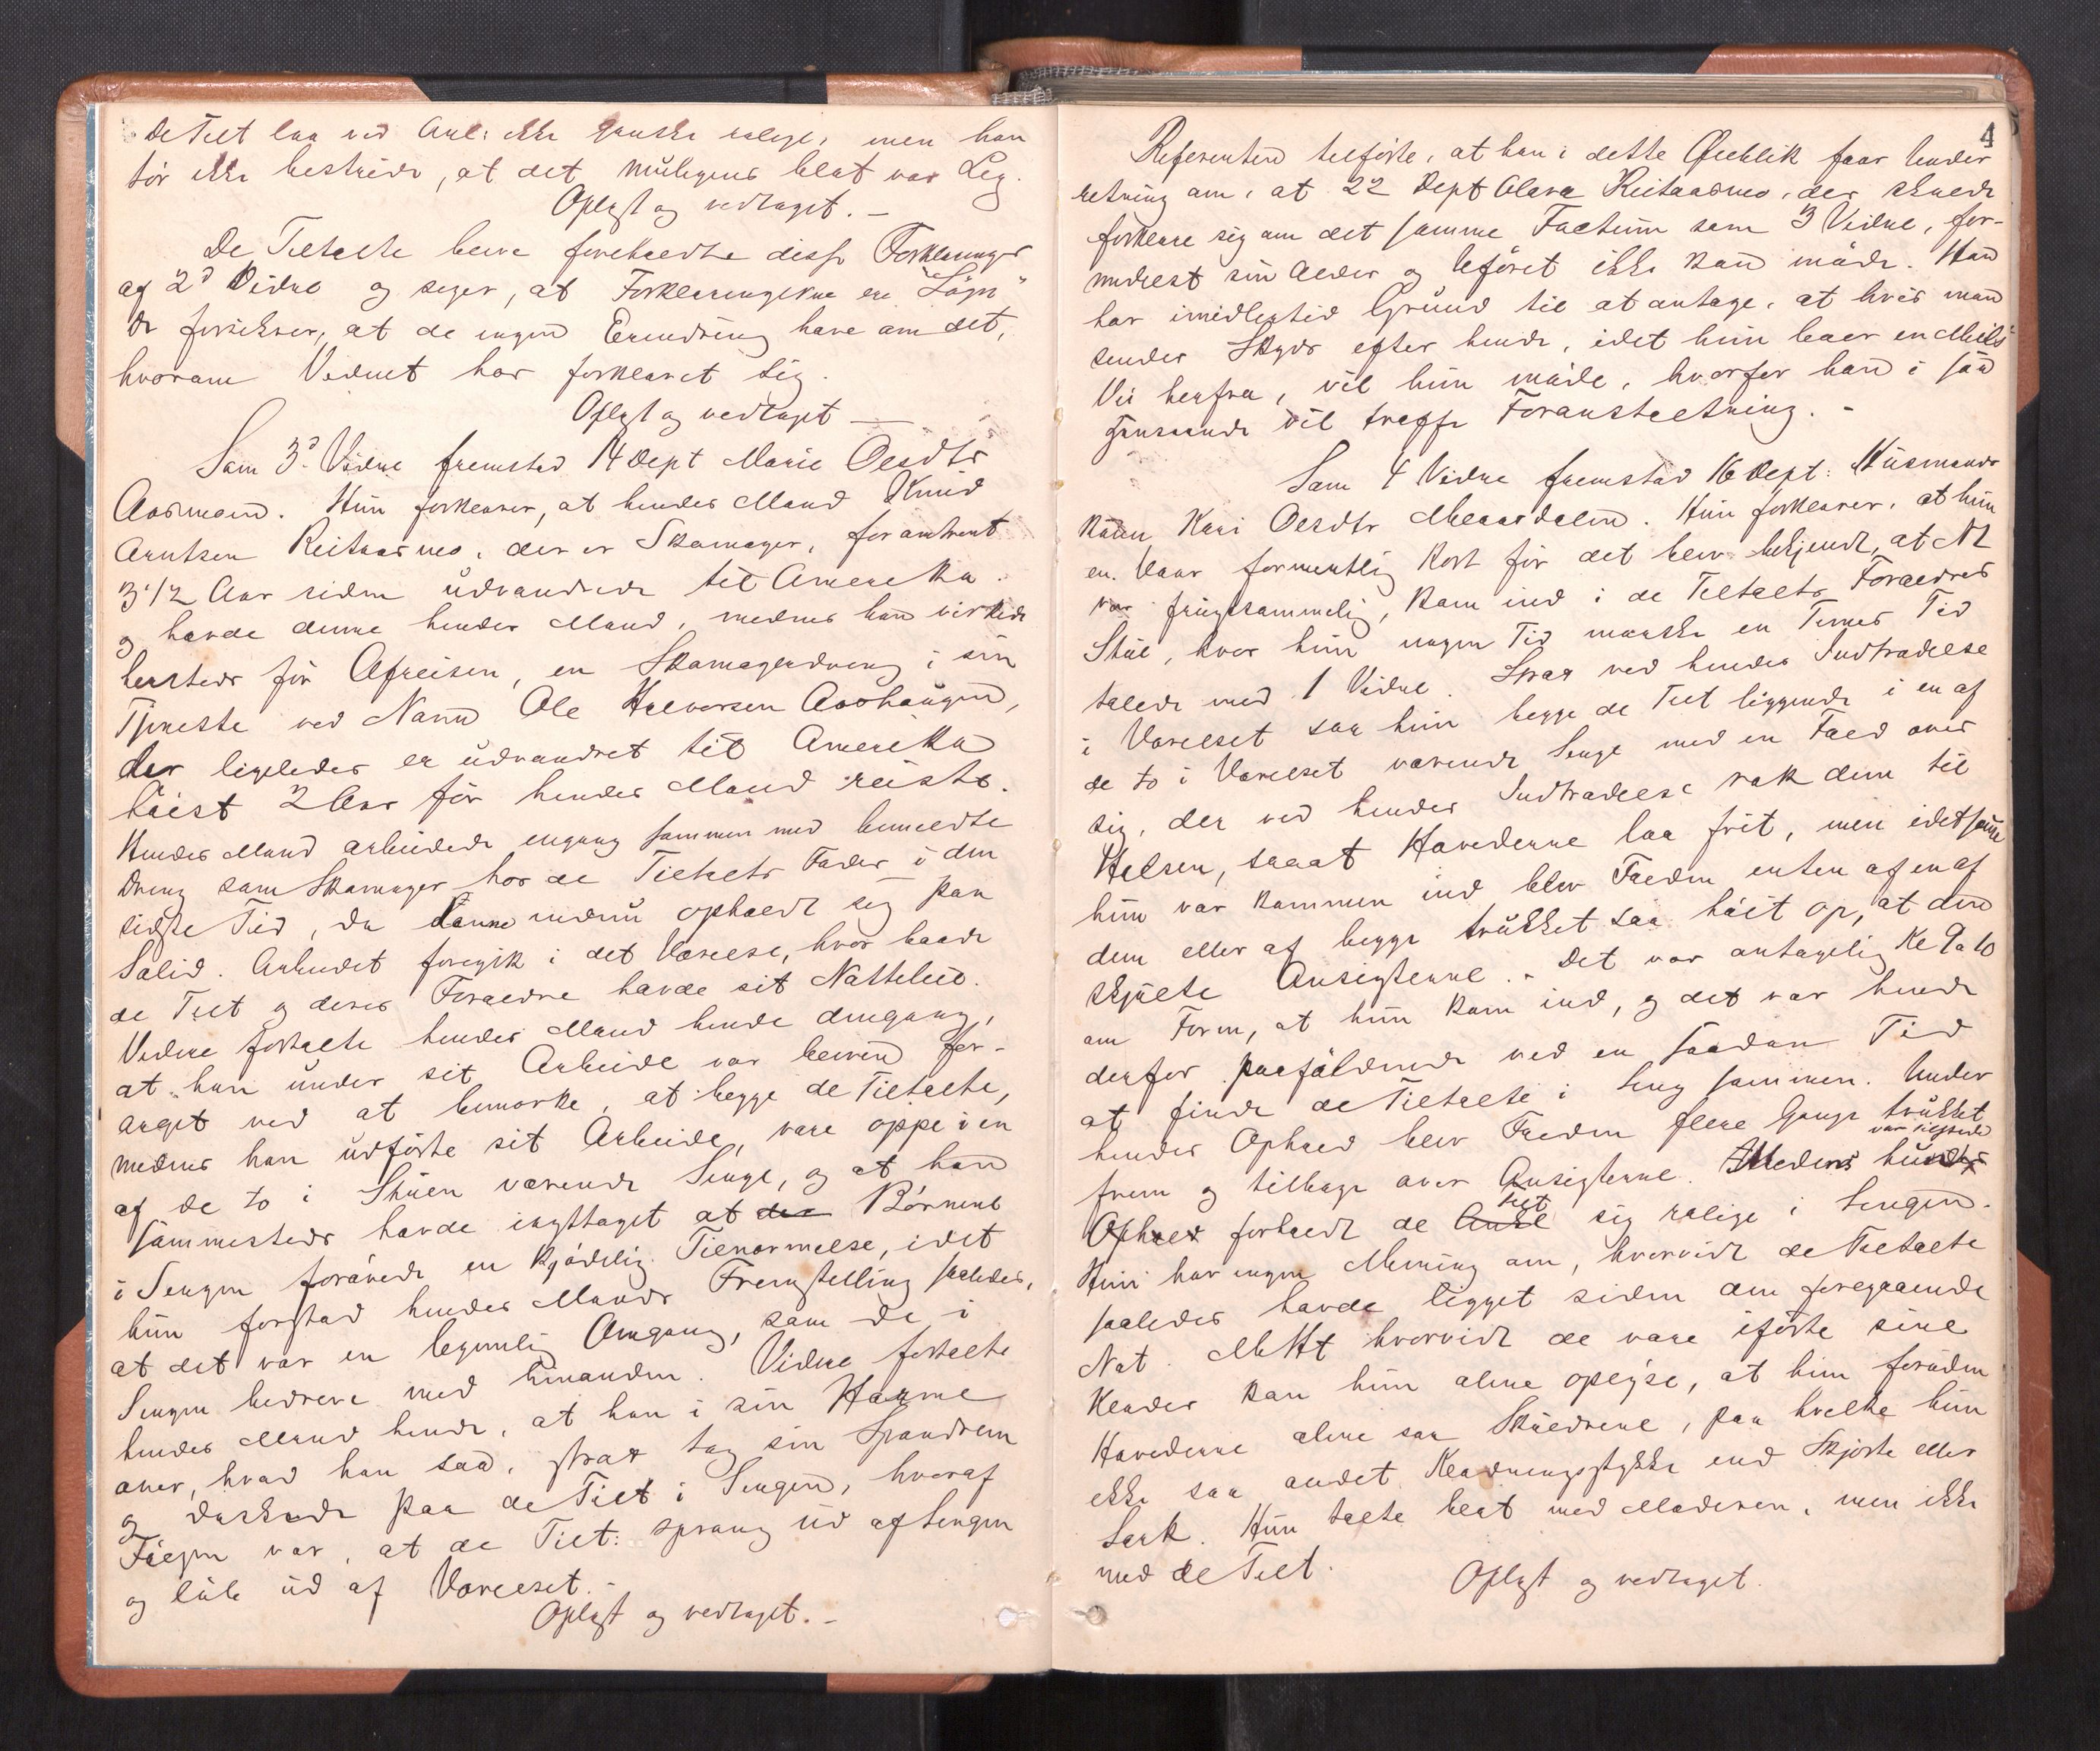 de Tilt laa ved Anl: ikke ganske rolige, men han
tør ikke bestride, at det muligens blot var Leg.
Oplæst og vedtaget. –
De Tiltalte bleve foreholdte disse Forklaringer
af 2d Vidne og siger, at Forklaringerne er "Løgn"
de forsikrer, at de ingen Erindring have om det,
hvorom Vidnet har forklaret sig.
Oplæst og vedtaget –
Som 3d Vidne fremstod 14 Dept Marie Olsdtr
Aasmoen. Hun forklarer, at hendes Mand Knud
Arntsen Reitaasmo, der er Skomager, for omtrent
3 1/2 Aar siden udvandrede til Amerika
og havde denne hendes Mand, medens han virkede
hersteds før Afreisen, en Skomagerdreng i sin
Tjeneste ved Navn Ole Halvorsen Aashaugen,
der ligeledes er udvandret til Amerika
høist 2 Aar før hendes Mand reiste.
Hendes Mand arbeidede engang sammen med bemeldte
Dreng som Skomager hos de Tiltaltes Fader i den
sidste Tid, da denne endnu opholdt sig paa
Solid. Arbeidet foregik i det Værelse, hvor baade
de Tilt og deres Forældre havde sit Natteleie.
Videre fortalte hendes Mand hende dengang,
at han under sit Arbeide var bleven for-
arget ved at bemærke, at begge de Tiltalte,
medens han udførte sit Arbeide, vare oppe i en
af de to i Stuen værende Senge, og at han
sammesteds havde iagttaget at der Børnene
i Sengen forøvede en kjødelig Tilnærmelse, idet
hun forstod hendes Mands Fremstilling saaledes,
at det var en legemlig Omgang, som de i
Sengen bedreve med hinanden. Videre fortalte
hendes Mand hende, at han i sin Harme
over, hvad han saa, strax tog sin Spandrem
og daskede paa de Tilt i Sengen, hvoraf
Følgen var, at de Tilt: sprang ud af Sengen
og løb ud af Værelset. –
Oplæst og vedtaget. –
4
Referenten tilførte, at han i dette Øieblik faar Under
retning om, at 22 Dept Olava Reitaasmo, der skulde
forklare sig om det samme Factum som 3 Vidne, for-
medelst sin Alder og Uføret ikke kan møde. Han
har imidlertid Grund til at antage, at hvis man
sender Skyds efter hende, idet hun boer en Meils
Vei herfra, vil hun møde, hvorfor han i saa
Henseende vil træffe Foranstaltning. –
Som 4 Vidne fremstod 16 Dept: Husmands
kone Kari Olsdtr Melaasdalen. Hun forklarer, at hun
en Vaar formentlig kort før det blev bekjendt, at N 2
var frugtsommelig, kom ind i de Tiltaltes Forældres
Stue, hvor hun nogen Tid maaske en Times Tid
talede med 1 Vidne. Strax ved hendes Indtrædelse
i Værelset saa hun begge de Tilt liggende i en af
de to i Værelset værende Senge med en Fæld over
sig, der ved hendes Indtrædelse rak dem til
Halsen, saaat Hovederne laa frit, men idetsamme
hun var kommen ind blev Fælden enten af en af
dem eller af begge trukket saa høit op, at den
skjulte Ansigterne. – Det var antagelig Kl 9 a 10
om Form, at hun kom ind, og det var hende
derfor paafaldende ved en saadan Tid
at finde de Tiltalte i Seng sammen. Under
hendes Ophold blev Fælden flere Gange trukket
frem og tilbage over Ansigterne. Medens hun var tilstede
Ophold forholdt de Tilt sig rolige i Sengen.
Hun har ingen Mening om, hvorvidt de Tiltalte
saaledes havde ligget siden den foregaaende
Nat. M H t hvorvidt de vare iførte sine
Klæder kan hun alene oplyse, at hun foruden
Hovederne alene saa Skuldrene, paa hvilke hun
ikke saa andet Klædningsstykke end Skjorte eller
Særk. Hun talte blot med Moderen, men ikke
med de Tilt.
Oplæst og vedtaget.